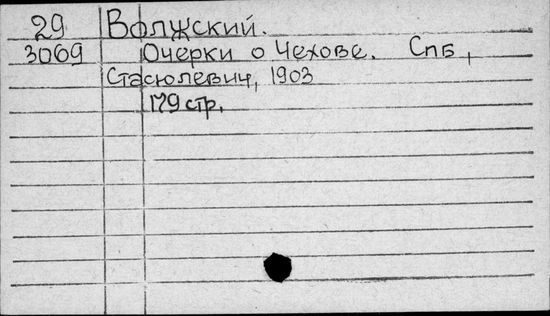 29 Волжский.
3069 Очерки о Чехове. Спб,
Стасюлевич, 1903
179 стр.